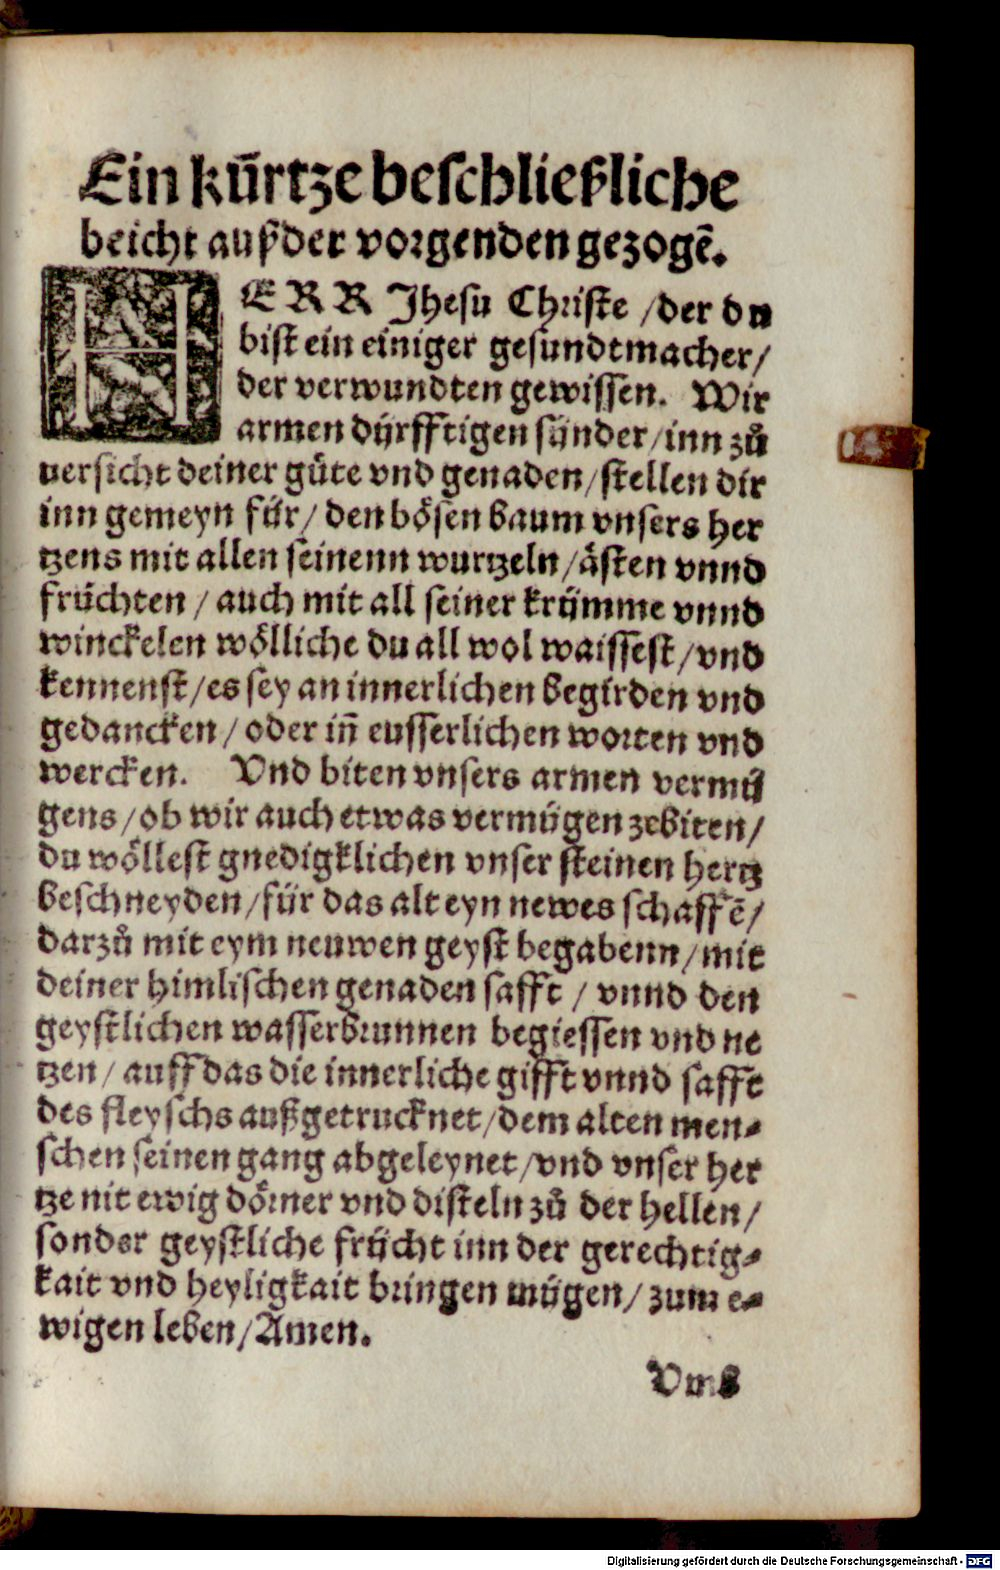 Ein kürtze beschließliche
beicht auß der vorgenden gezogē.
HERR Jhesu Christe /der du
bist ein einiger gesundtmacher/
der verwundten gewissen. Wir
armen dyrfftigen sünder/inn zů
versicht deiner güte vnd genaden/stellen dir
inn gemeyn für/ den bösen baum vnsers her
tzens mit allen seinenn wurtzeln/ästen vnnd
früchten / auch mit all seiner krümme vnnd
winckelen wölliche du all wol waissest/vnd
kennenst/es sey an innerlichen begirden vnd
gedancken/ oder in̄ eusserlichen worten vnd
wercken. Vnd biten vnsers armen vermü
gens/ob wir auch etwas vermügen zebiten/
du wöllest gnedigklichen vnser steinen hertz
beschneyden/für das alt eyn newes schaffē/
darzů mit eym neuwen geyst begabenn/mit
deiner himlischen genaden safft / vnnd den
geystlichen wasserbrunnen begiessen vnd ne
tzen/ auff das die innerliche gifft vnnd safft
des fleyschs außgetrucknet/dem alten men-
schen seinen gang abgeleynet/vnd vnser her
tze nit ewig dörner vnd disteln zů der hellen/
sonder geystliche frücht inn der gerechtig-
kait vnd heyligkait bringen mügen/ zum e-
wigen leben/Amen.
Digitalisierung gefördert durch die Deutsche Forschungsgemeinschaft - DFG